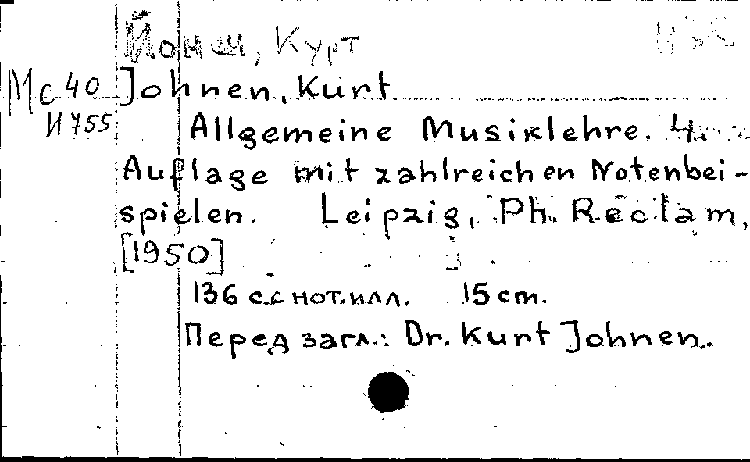 Йонен, Курт
Мс 40 Johnen, Kurt
И 755 Allgemeine Musiklehre. 4.
Auflage mit zahlreichen Notenbei-
spielen. Leipzig, Ph. Reclam,
[1950]
136 с.с нот.илл. 15 cm.
Перед загл.: Dr. Kurt Johnen.